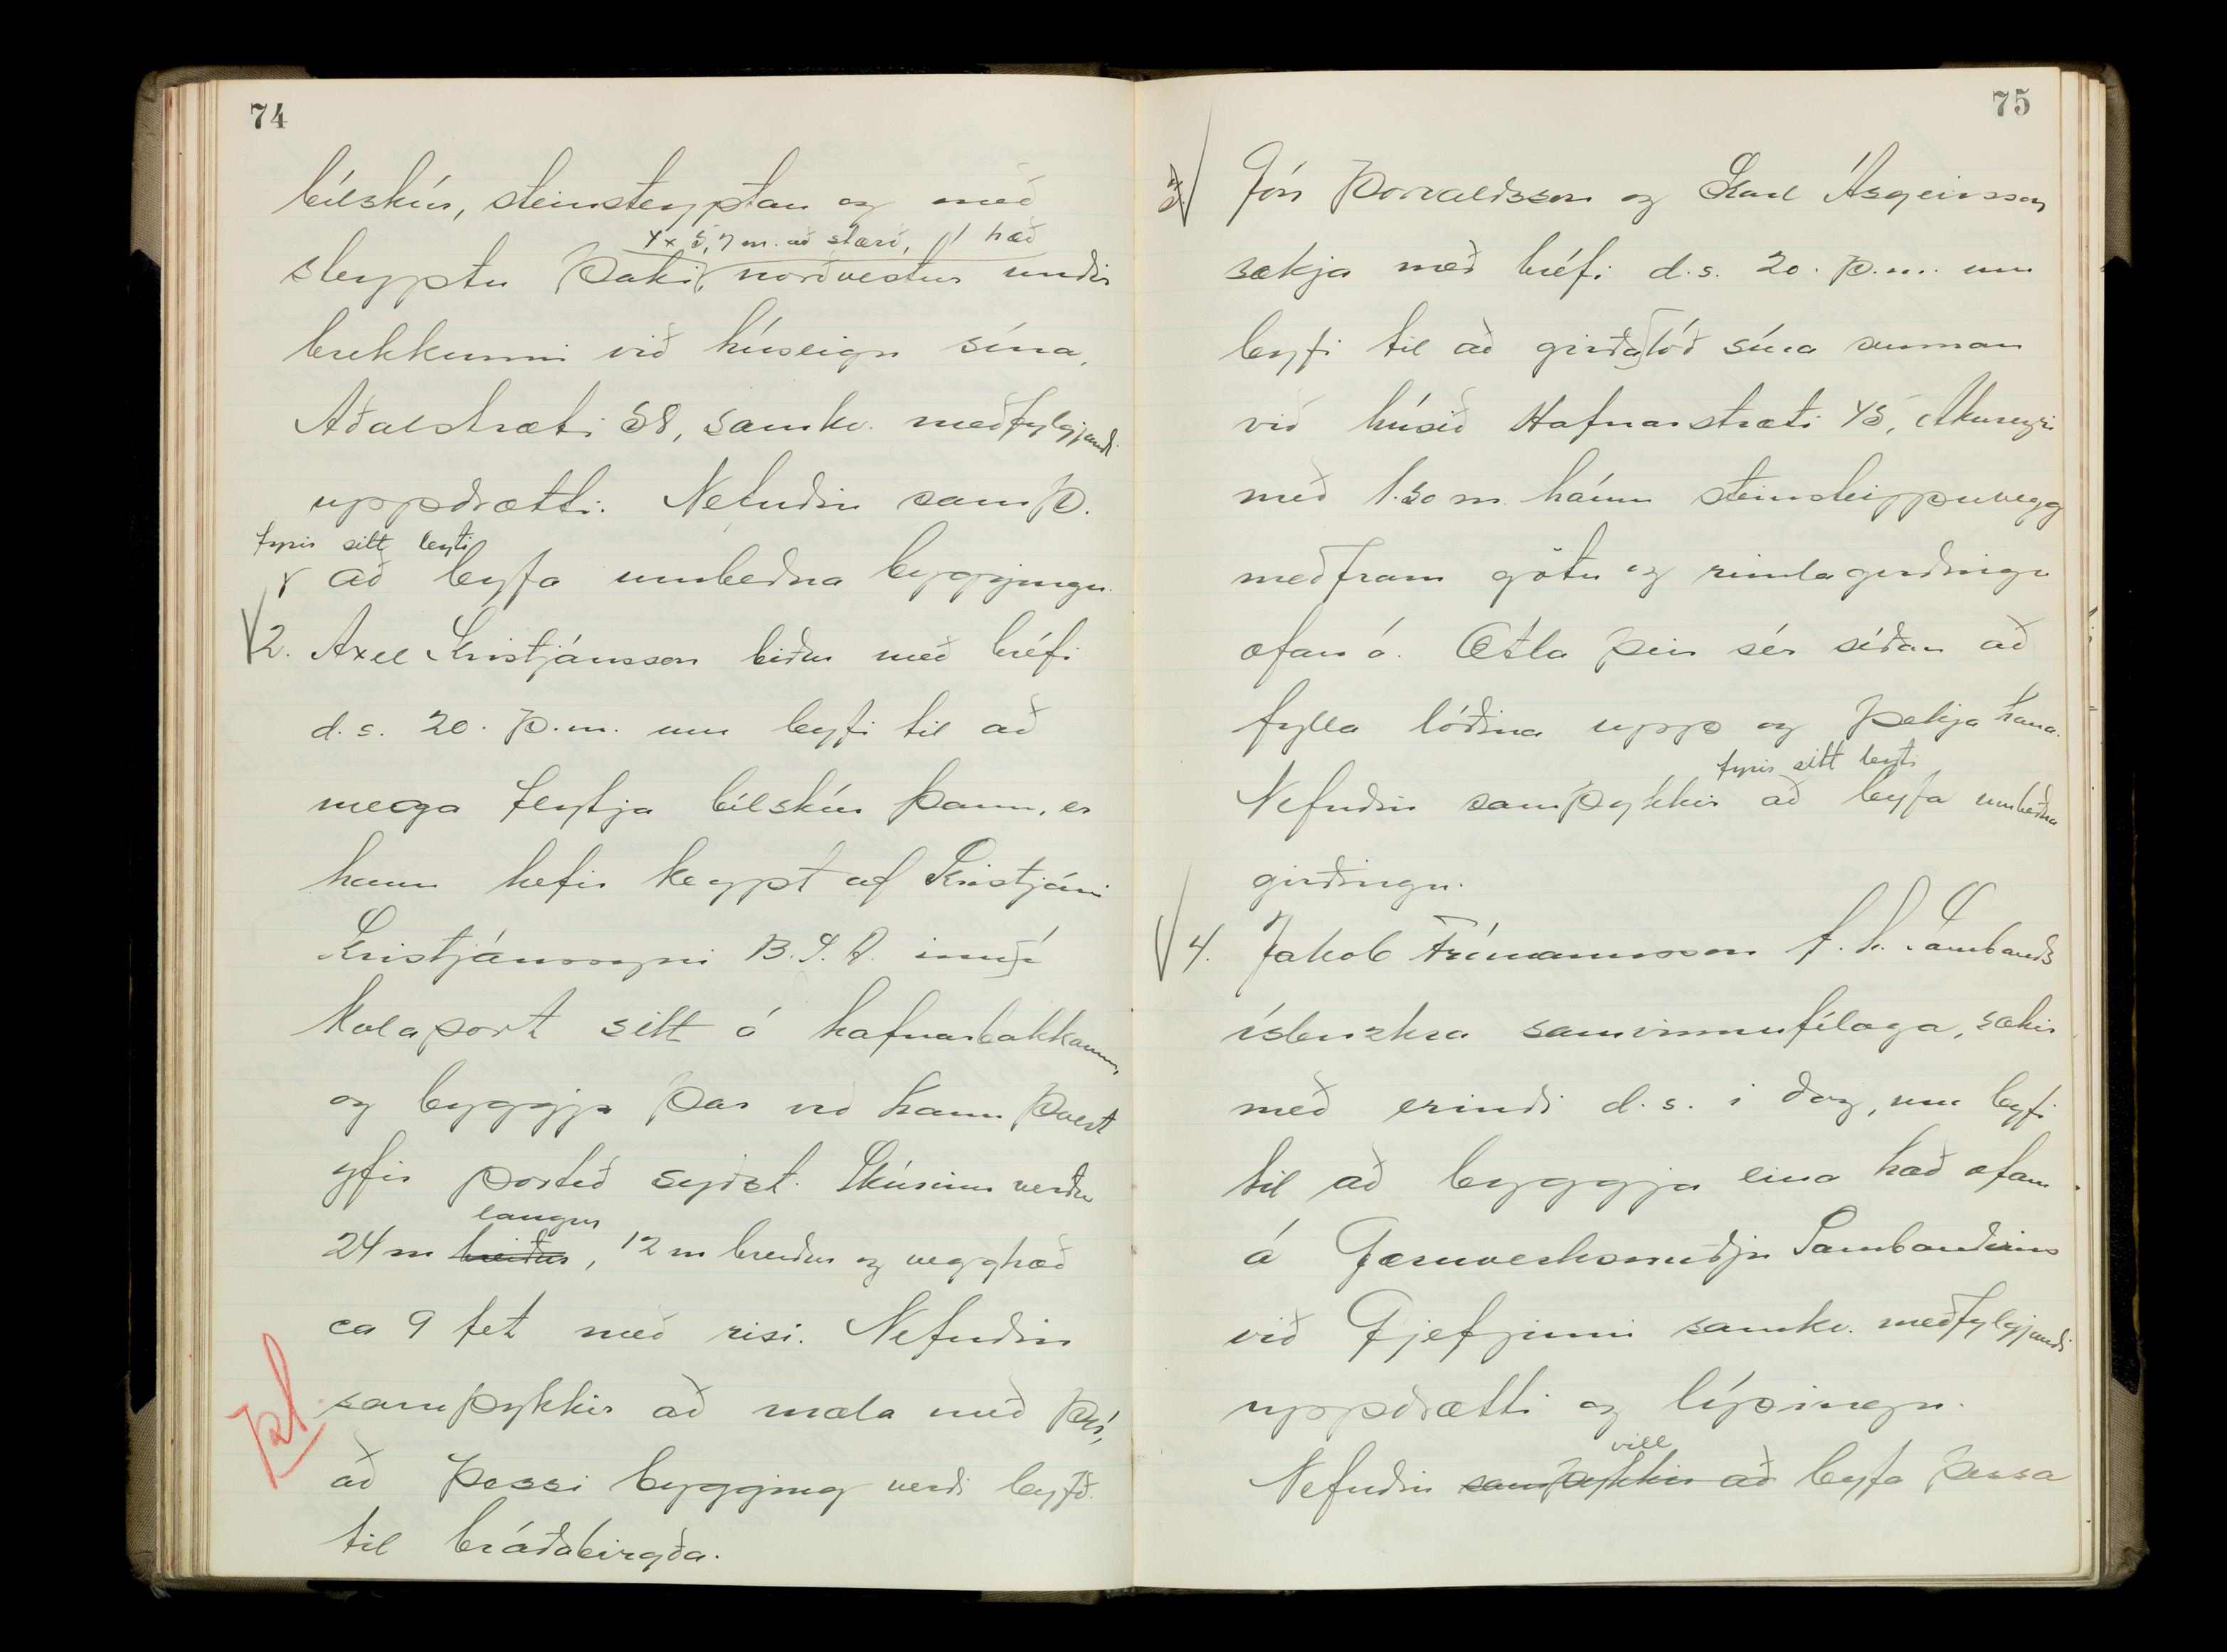 74
bílskúr, steinsteyptan og með
4 x 5,7 m. að stærð, 1 hæð
steyptu þaki, norðvestur undir
brekkunni við húseign sína,
Aðalstræti 58, samkv. meðfylgjandi
uppdrætti. Nefndin samþ.
fyrir sitt leyti
að leyfa umbeðna byggingu.
2. Axel Kristjánsson biður með bréfi
d.s. 20. þ.m. um leyfi til að
mega flytja bílskúr þann, er
hann hefir keypt af Kristjáni
Kristjánssyni B.S.A. inn í
kolaport sitt á hafnarbakkanum,
og byggja þar við hann þvert
yfir portið syðst. Skúrinn verður
langur
24 m breiður, 12 m breiður og vegghæð
ca 9 fet með risi. Nefndin
samþykkir að mæla með því,
að þessi bygging verði leyfð
til bráðabirgða.
75
3. Jón Þorvaldsson og Karl Ásgeirsson
sækja með bréfi d.s. 20. þ.m. um
leyfi til að girða lóð sína sunnan
við húsið Hafnarstræti 45, Akureyri
með 1.50 m. háum steinsteippuvegg
meðfram götu og rimlagirðingu
ofan á. Ætla þeir sér síðan að
fylla lóðina upp og þekja hana.
fyrir sitt leyti
Nefndin samþykkir að leyfa umbeðna
girðingu.
4. Jakob Frímannsson f.h. Sambands
íslenzkra samvinnufélaga, sækir
með erindi d.s. í dag, um leyfi
til að byggja eina hæð ofan
á Gæruverksmiðju Sambandsins
við Gefjunni samkv. meðfylgjandi
uppdrætti og lýsingu.
vill
Nefndin samþykkir að leyfa þessa